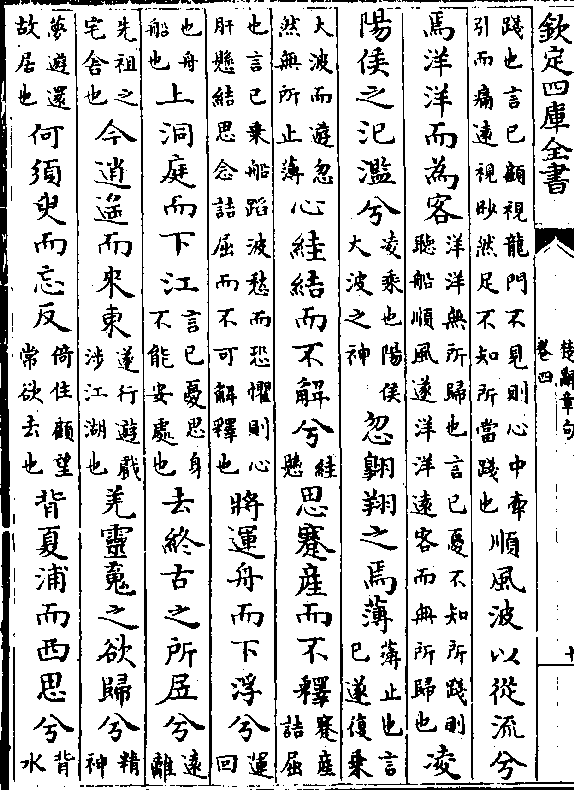 欽定四庫全書
楚辭章句
卷四
十
踐也言已顧視龍門不見則心中牽引而痛遠視眇然足不知所當踐也順風波以從流兮
焉洋洋而為客洋洋無所歸也言已憂不知所踐則聽船順風遂洋洋遠客而無所歸也凌
陽侯之氾濫兮凌乘也陽侯大波之神忽翺翔之焉薄薄止也言已遂復乘
大波而遊忽然無所止薄心絓結而不解兮絓懸思蹇産而不釋蹇産詰屈
也言已乘船蹈波愁而恐懼則心肝懸結思念詰屈而不可解釋也將運舟而下浮兮運回
也舟船也上洞庭而下江言已憂思身不能安處也去終古之所居兮遠離
先祖之宅舍也今逍遙而來東遂行遊戲涉江湖也羌靈䰟之欲歸兮精神
夢遊還故居也何須臾而忘反倚住顧望常欲去也背夏浦而西思兮背水